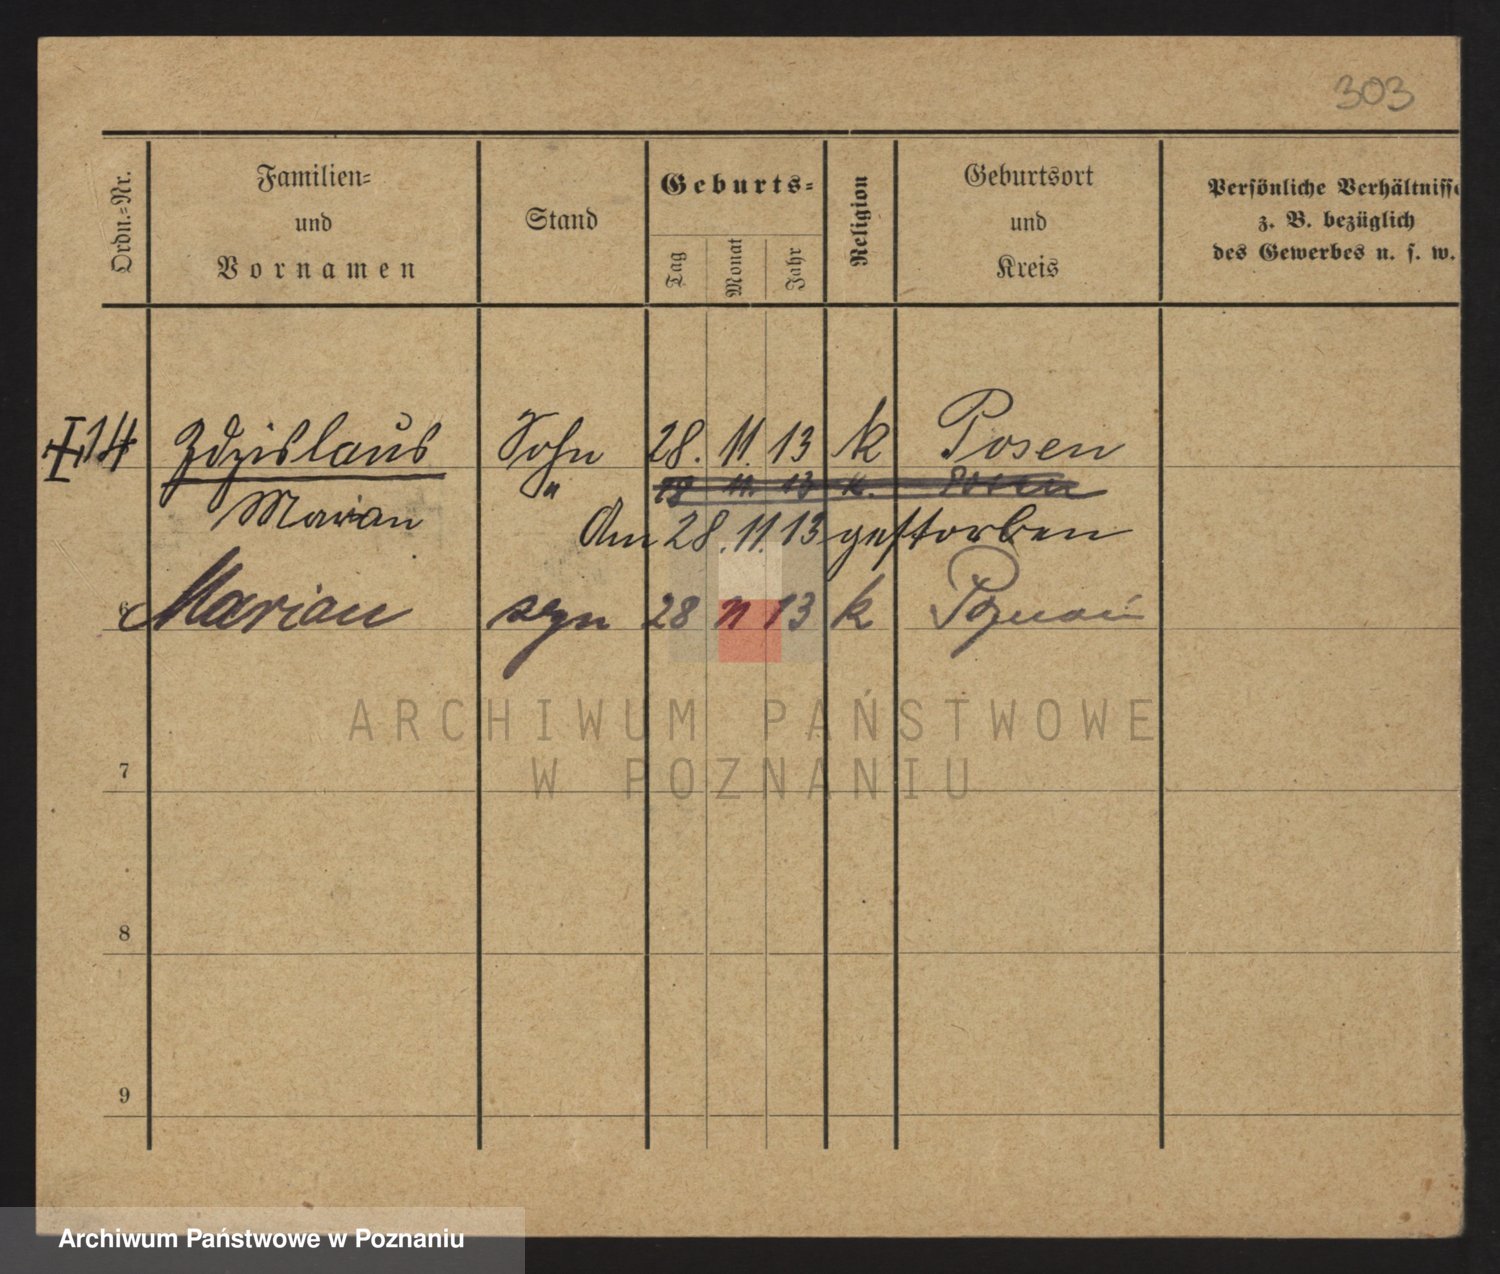 303
Ordn.=Nr.
Familien=
und
Vornamen
Stand
Geburts=
Tag
Monat
Jahr
Religion
Geburtsort
und
Kreis
Persönliche Verhältnisse
z. B. bezüglich
des Gewerbes u. s. w.
14 Zdzislaus Sohn 28. 11. 13 k Posen
Marian " 28 11. 13 k. Posen
Am 28. 11. 13 gestorben
6 Marian syn 28 11 13 k Poznań
ARCHIWUM PAŃSTWOWE
W POZNANIU
7
8
9
Archiwum Państwowe w Poznaniu